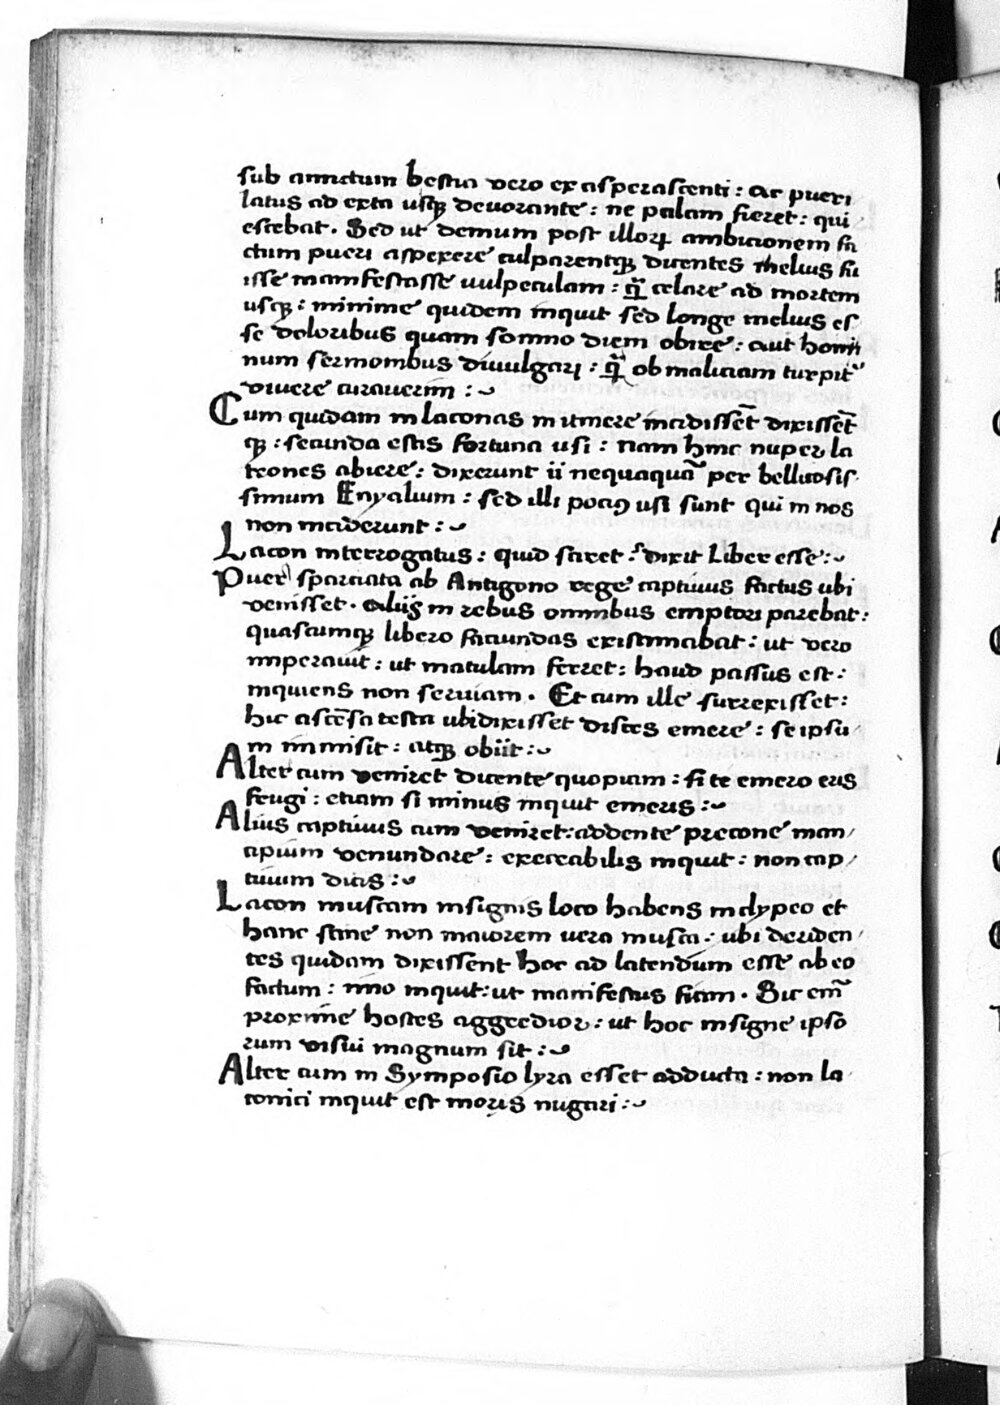 sub amictum bestia vero exasperascenti : ac pueri
latus ad exta usqꝫ devorante : ne palam fieret : qui
escebat . Sed ut demum post illoꝝ ambicionem fa
ctum pueri aspexere culparentqꝫ dicentes melius fu
isse manifestasse vulpeculam : q̄ celare ad mortem
usqꝫ : minime quidem inquit sed longe melius es
se doloribus quam somno diem obire : aut homi
num sermonibus divulgari : q̄ ob maliciam turpit᷑
vivere curaverim :~
Cum quidam in laconas in itinere incidissēt dixissēt
qꝫ : secunda estis fortuna usi : nam hinc nuper la
trones abiere : dixerunt ii nequaquā per bellicosis
simum Enyalium : sed illi pociꝰ usi sunt qui in nos
non inciderunt :~
Lacon interrogatus : quid sciret : dixit Liber esse :~
Puer sparciata ab Antigono rege captivus factus ubi
venisset . Aliis in rebus omnibus emptori parebat :
quascumqꝫ libero faciundas existimabat : ut vero
imperavit : ut matulam ferret : haud passus est :
inquiens non serviam . Et cum ille surrexisset :
hic ascēsa testa ubi dixisset disces emere : se ipsu
m inmisit : atqꝫ obiit :~
Alter cum veniret dicente quopiam : si te emero eris
frugi : etiam si minus inquit emeris :~
Alius captivus cum veniret : addente precone man
cipium venundare : execrabilis inquit : non cap
tivum dicis :~
Lacon muscam insignis loco habens in clypeo et
hanc sane non maiorem vera musca : ubi deriden
tes quidam dixissent hoc ad latendum esse ab eo
factum : imo inquit : ut manifestus fiam . Sic em̄
proxime hostes aggredior : ut hoc insigne ipso
rum visui magnum sit :~
Alter cum in Symposio lyra esset adducta : non la
conici inquit est moris nugari :~